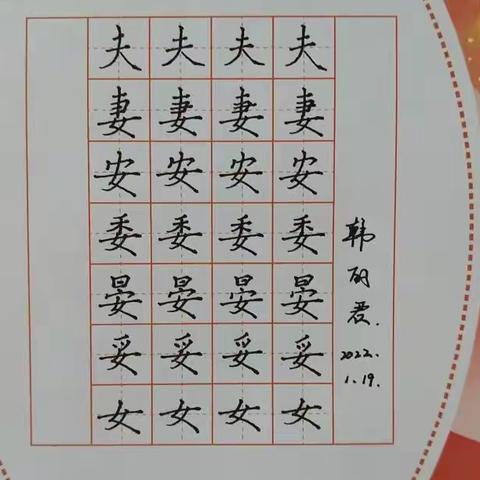 夫夫夫夫
妻妻妻妻
安安安安
委委委委
晏晏晏晏
妥妥妥妥
女女女女
韩丽爱.
2022.
1.19.